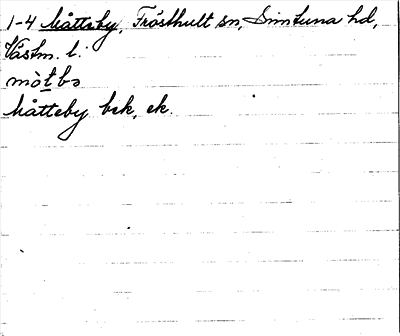 1-4 Måttsby, Frösthult sn, Simtuna hd,
Västm. l.
mòtbɘ
Måtteby bek, ek.